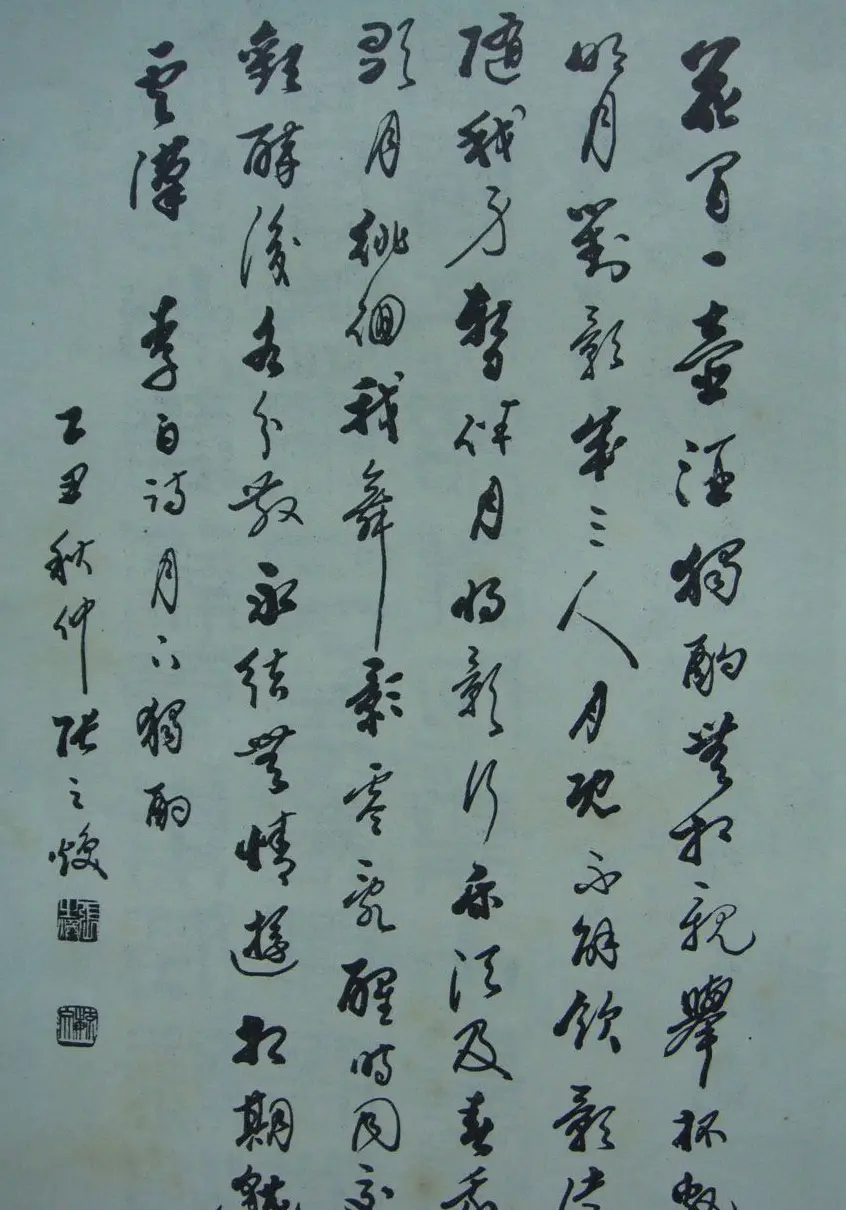 花間一壺酒獨酌無相親舉杯邀
明月對影成三人月既不解飲影徒
隨我身暫伴月將影行樂須及春我
歌月徘徊我舞影零亂醒時同交
歡醉後各分散永結無情遊相期邈
雲漢 李白詩月下獨酌
乙丑秋仲張之